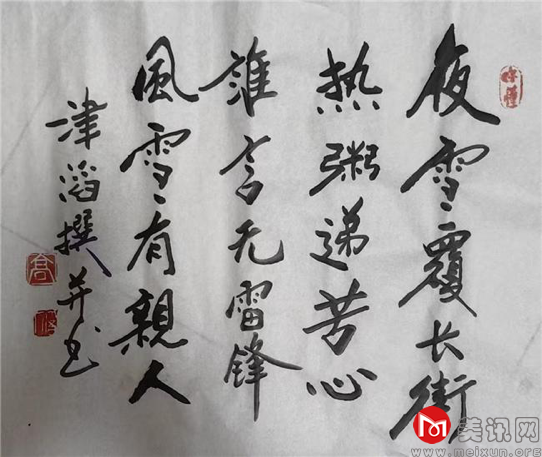 夜雪覆长街
热粥递苦心
谁言无雷锋
风雪有親人
津滔撰并书
美讯网
www.meixun.org